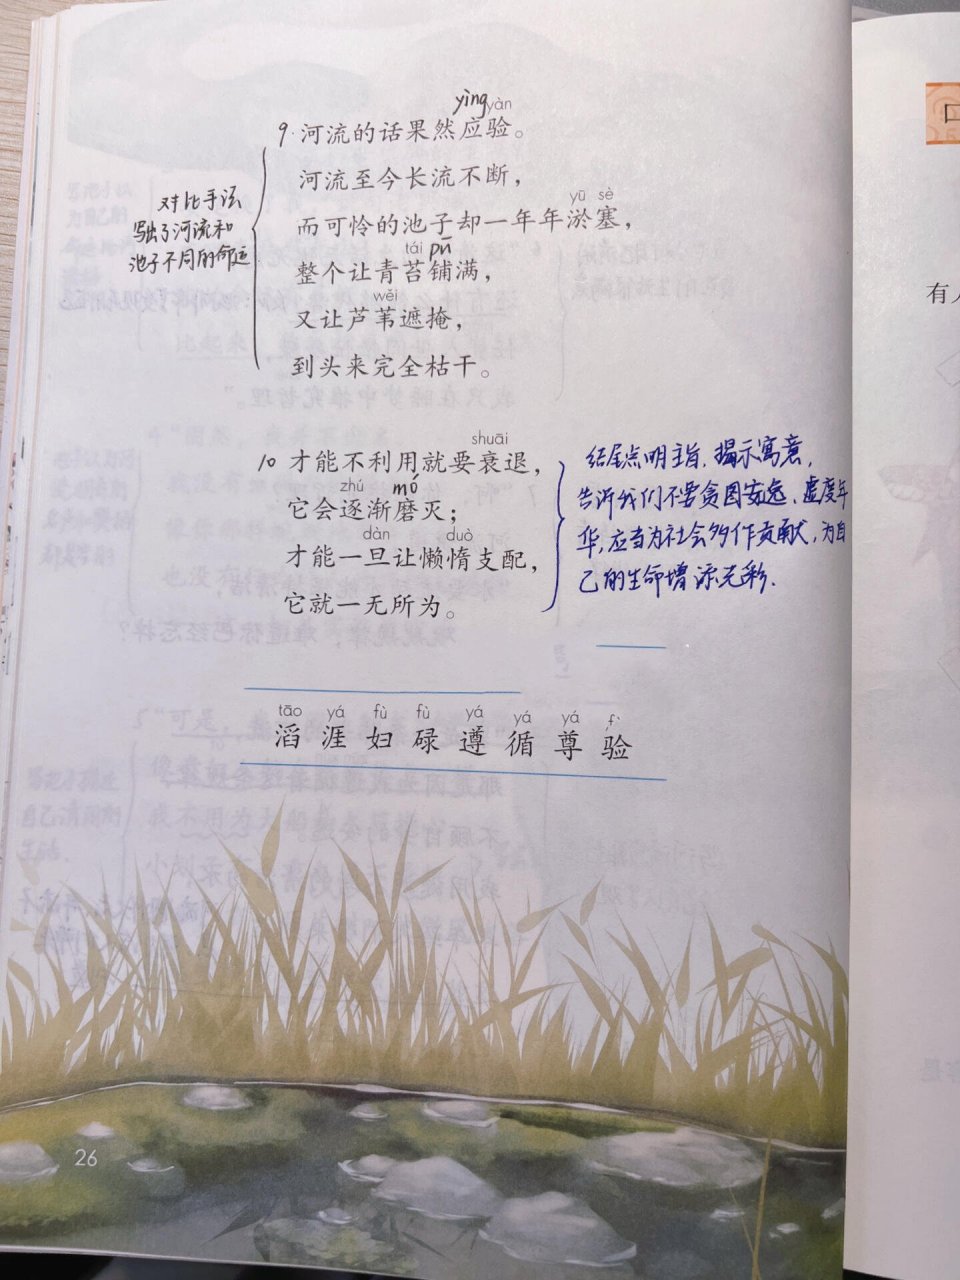 yìng yàn
9. 河流的话果然应验。
河流至今长流不断，
yū sè
而可怜的池子却一年年淤塞，
tái pū
整个让青苔铺满，
wěi
又让芦苇遮掩，
到头来完全枯干。
对比手法
写出了河流和
池子不同的命运
shuāi
10 才能不利用就要衰退，
zhú mó
它会逐渐磨灭；
dàn duò
才能一旦让懒惰支配，
它就一无所为。
结尾点明主旨，揭示寓意，
告诉我们不要贪图安逸、虚度年
华，应当为社会多作贡献，为自
己的生命增添光彩.
tāo yá fù fù yá yá yá f
滔 涯 妇 碌 遵 循 尊 验
26
有人